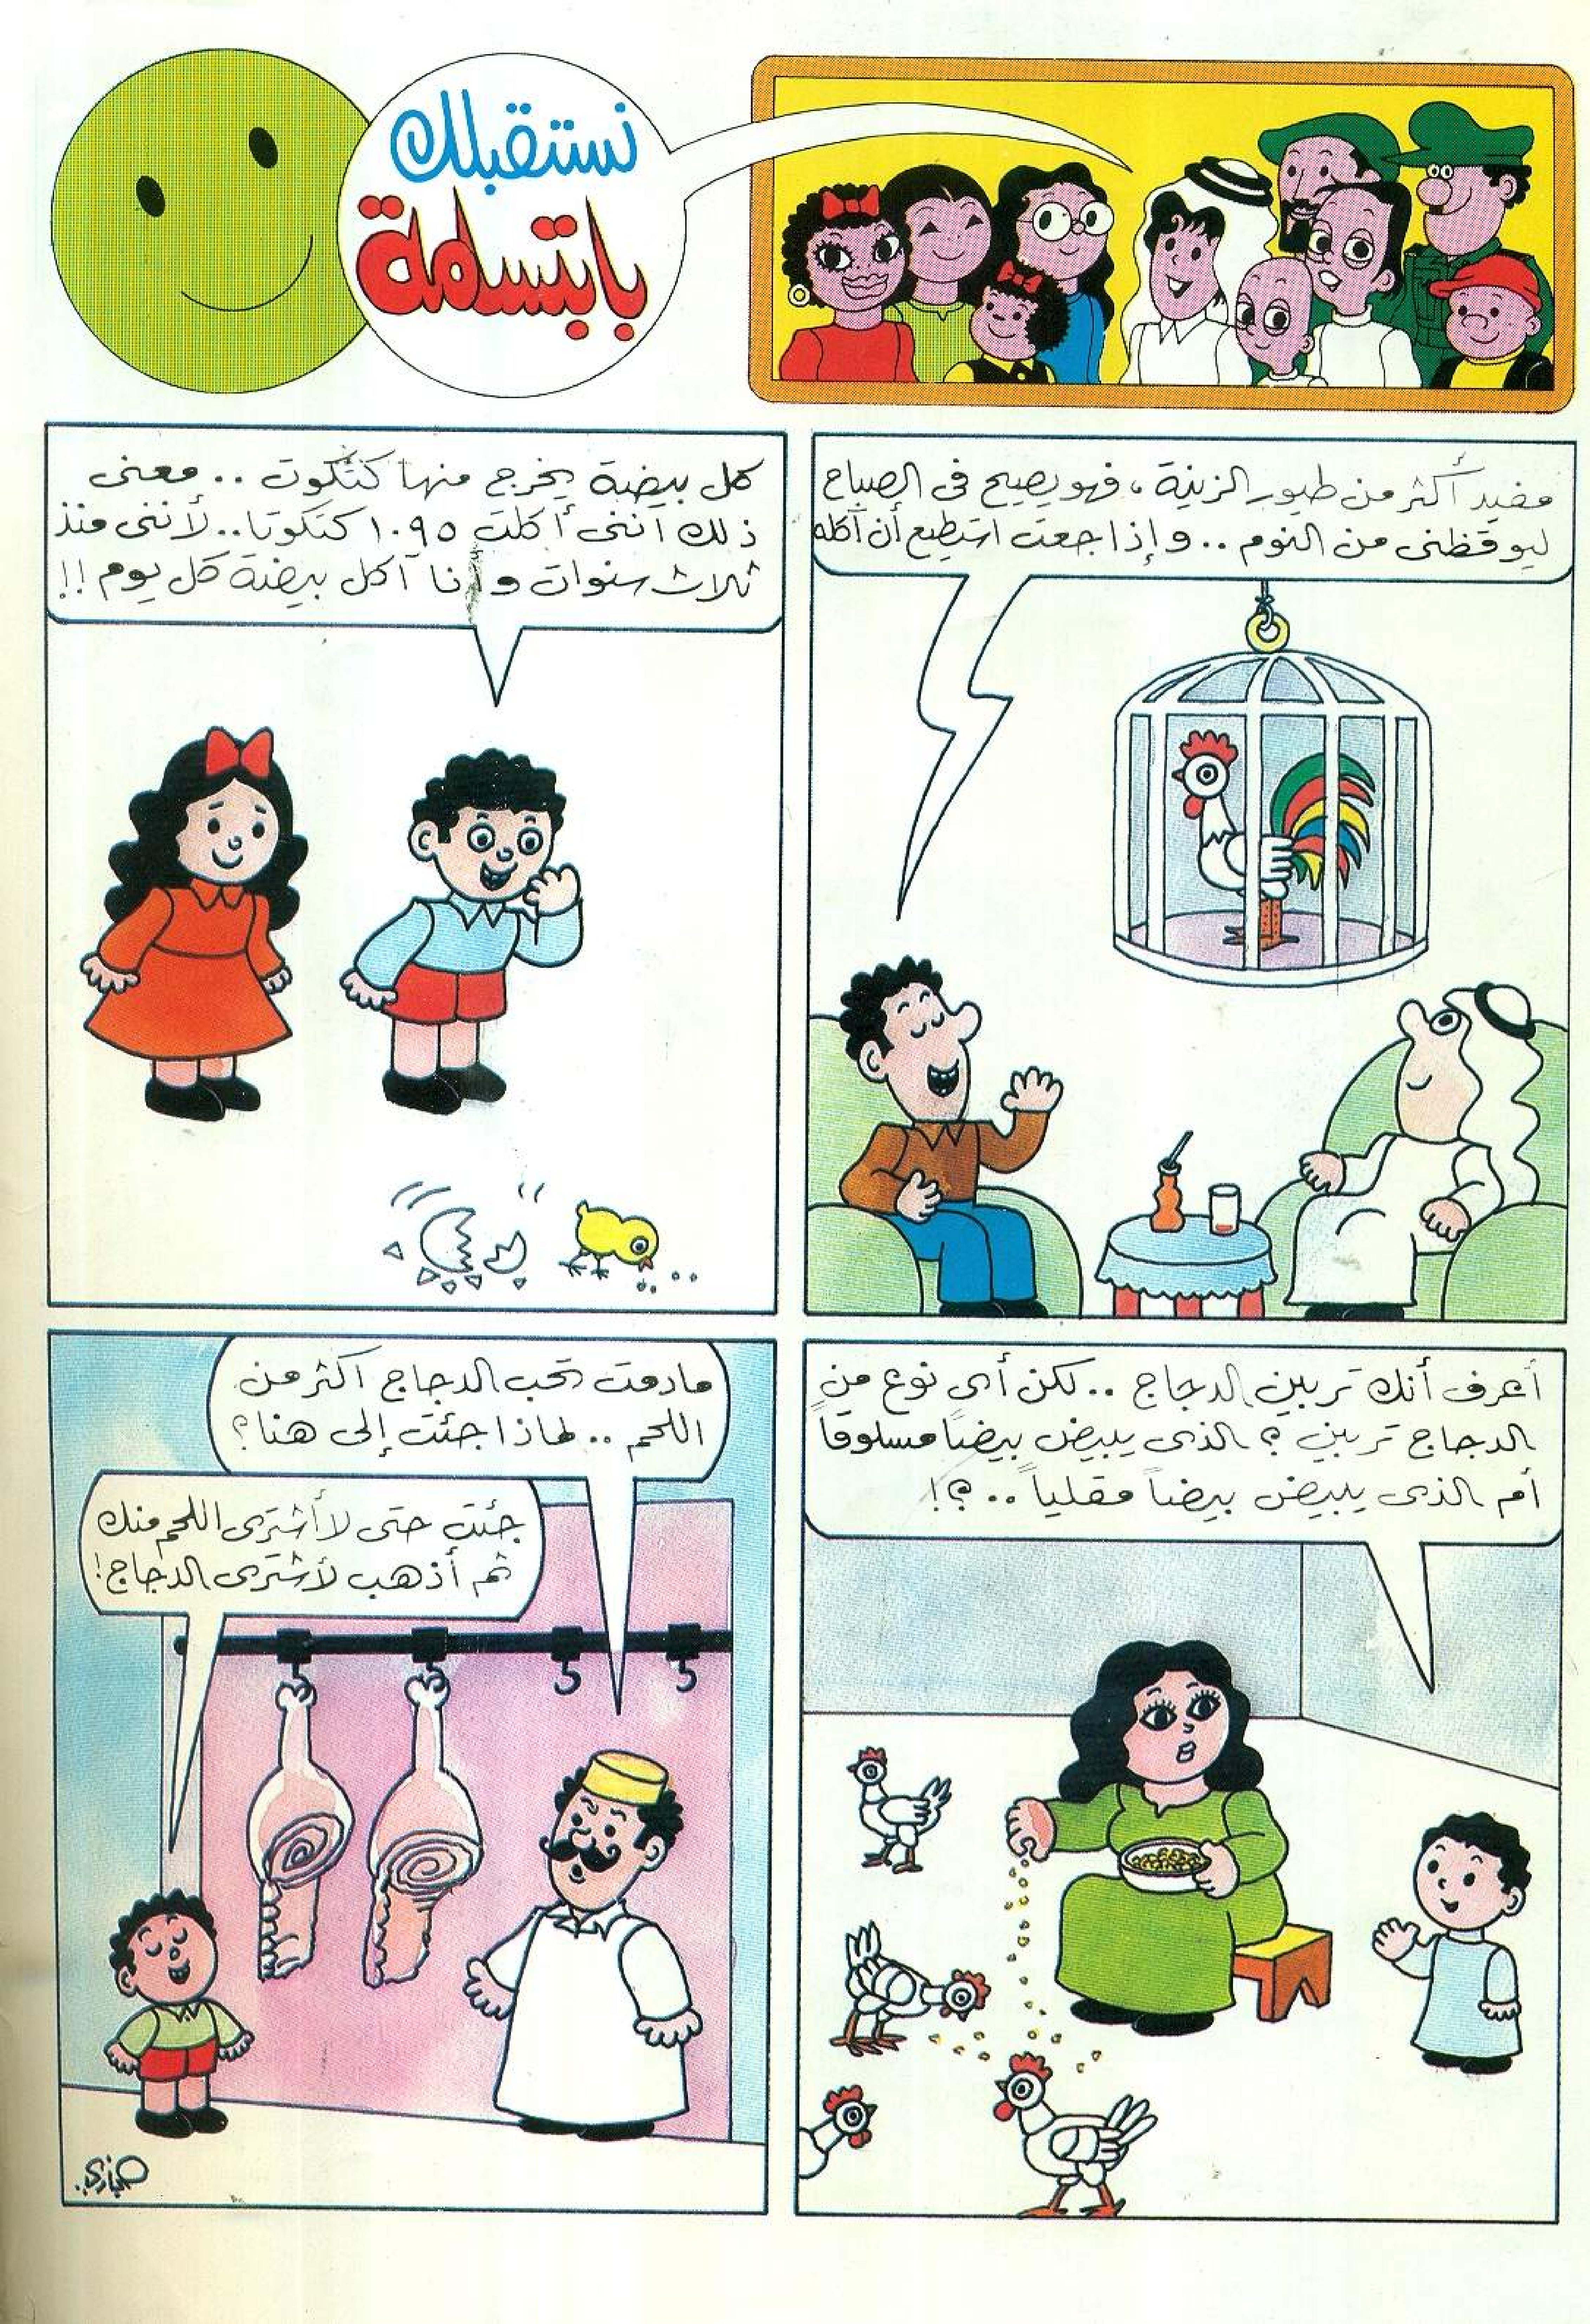 نستقبلك
بابتسامة
مفيد أكثر من طيور الزينة، فهو يصيح فى الصباح
ليوقظنى من النوم .. وإذا جعت استطيع أن آكله
كل بيضة يخرج منها كتكوت .. معنى
ذلك أننى أكلت ١٠٩٥ كتكوتا .. لأننى منذ
ثلاث سنوات وأنا آكل بيضة كل يوم !!
أعرف أنك تربين الدجاج .. لكن أى نوع من
الدجاج تربين ؟ الذى يبيض بيضاً مسلوقاً
أم الذى يبيض بيضاً مقلياً .. ؟!
مادمت تحب الدجاج اكثر من
اللحم .. لماذا جئت إلى هنا ؟
جئت حتى لا أشترى اللحم منك
ثم أذهب لأشترى الدجاج !